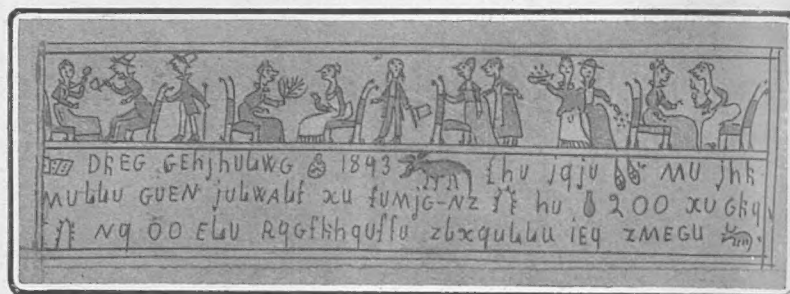 DREG GEhjhULWG 1893 fhu jqju MU jhR
MULLU GUEN jULWALf xU fUMjG-NZ hU 200 xU GRq
Nq OO ELU RqGfRhhqUffU zLxqULLU iEq zMEGU